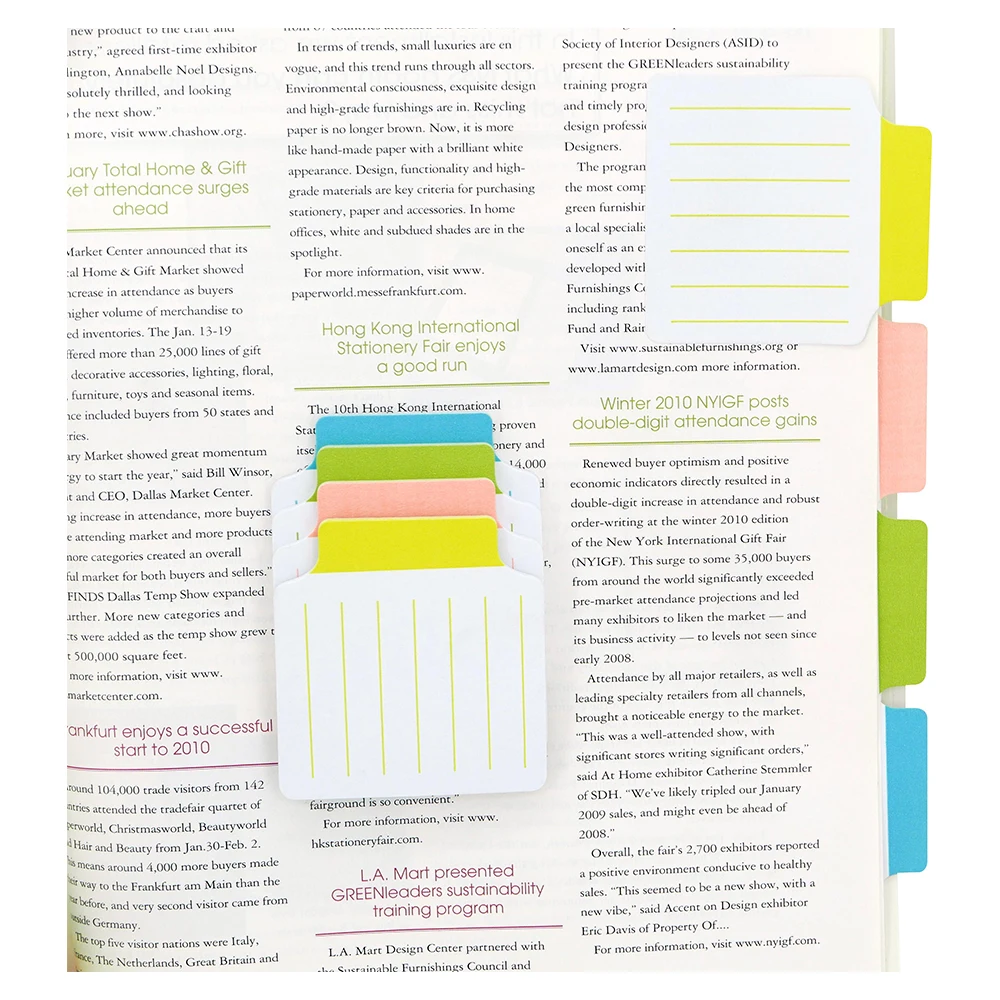 new product to the craft and
industry," agreed first-time exhibitor
Annabelle Noel Designs.
thrilled, and looking
the next show."
more, visit www.chashow.org.
Total Home & Gift
attendance surges
ahead
Market Center announced that its
Home & Gift Market showed
increase in attendance as buyers
higher volume of merchandise to
inventories. The Jan. 13-19
offered more than 25,000 lines of gift
decorative accessories, lighting, floral,
furniture, toys and seasonal items.
included buyers from 50 states and
Market showed great momentum
to start the year," said Bill Winsor,
and CEO, Dallas Market Center.
increase in attendance, more buyers
attending market and more products
more categories created an overall
market for both buyers and sellers."
FINDS Dallas Temp Show expanded
further. More new categories and
were added as the temp show grew
500,000 square feet.
more information, visit www.
marketcenter.com.
enjoys a successful
start to 2010
around 104,000 trade visitors from 142
attended the tradefair quartet of
Christmasworld, Beautyworld
Hair and Beauty from Jan.30-Feb. 2.
means around 4,000 more buyers made
way to the Frankfurt am Main than the
before, and every second visitor came from
outside Germany.
The top five visitor nations were Italy,
The Netherlands, Great Britain and
In terms of trends, small luxuries are en
vogue, and this trend runs through all sectors.
Environmental consciousness, exquisite design
and high-grade furnishings are in. Recycling
paper is no longer brown. Now, it is more
like hand-made paper with a brilliant white
appearance. Design, functionality and high-
grade materials are key criteria for purchasing
stationery, paper and accessories. In home
offices, white and subdued shades are in the
spotlight.
For more information, visit www.
paperworld.messefrankfurt.com.
Hong Kong International
Stationery Fair enjoys
a good run
The 10th Hong Kong International
proven
and
14,000
fairground is so convenient."
For more information, visit www.
hkstationeryfair.com.
L.A. Mart presented
GREENleaders sustainability
training program
L.A. Mart Design Center partnered with
the Sustainable Furnishings Council and
Society of Interior Designers (ASID) to
present the GREENleaders sustainability
training
and timely
design
Designers.
The
the most
green
a local
oneself as an
developed with
Furnishings
including
Fund and
Visit www.sustainablefurnishings.org or
www.lamartdesign.com more information.
Winter 2010 NYIGF posts
double-digit attendance gains
Renewed buyer optimism and positive
economic indicators directly resulted in a
double-digit increase in attendance and robust
order-writing at the winter 2010 edition
of the New York International Gift Fair
(NYIGF). This surge to some 35,000 buyers
from around the world significantly exceeded
pre-market attendance projections and led
many exhibitors to liken the market — and
its business activity — to levels not seen since
early 2008.
Attendance by all major retailers, as well as
leading specialty retailers from all channels,
brought a noticeable energy to the market.
"This was a well-attended show, with
significant stores writing significant orders,"
said At Home exhibitor Catherine Stemmler
of SDH. "We've likely tripled our January
2009 sales, and might even be ahead of
2008."
Overall, the fair's 2,700 exhibitors reported
a positive environment conducive to healthy
sales. "This seemed to be a new show, with a
new vibe," said Accent on Design exhibitor
Eric Davis of Property Of....
For more information, visit www.nyigf.com.